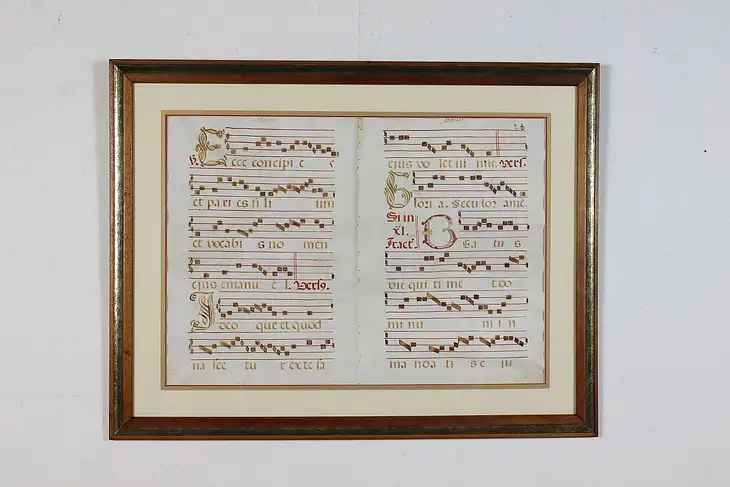 28
R. Ecce concipi e
et pa ri es fi li um
et vocabi s no men
ejus emanu e l. Vers9.
Ideo que et quod
na sce tu r ex te sa
ejus vo let ni mis. Vers.
Glori a. Secu lor ame.
Si in
xl.
Tract.
Bea tu s
vir qui ti me t do
mi nu m i n
ma n da ti s e ju